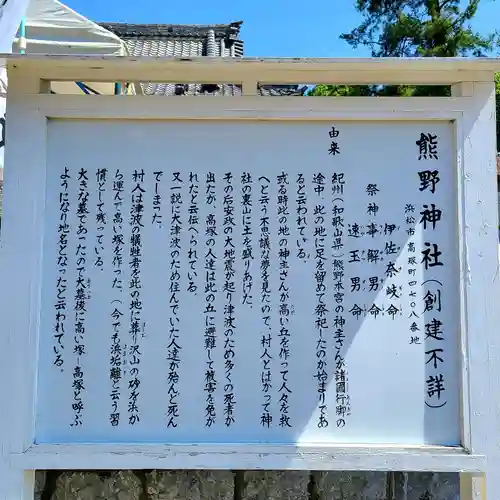 熊野神社(創建不詳)
浜松市高塚町四七〇八番地
伊佐奈岐命
祭神 事解男命
速玉男命
由来
紀州(和歌山県)熊野本宮の神主さんが諸国行脚の
途中、此の地に足を留めて祭祀したのか始まりであ
ると言われる。
或る時此の地の神主さんが高い丘を作って人々を救
へと云う不思議な夢を見たので、村人とはかって神
社の裏山に土を盛りあげた。
その后安政の大地震が起り津波のため多くの死者か
出たが、高塚の人達は此の丘に避難して被害を免が
れたと云伝へられている。
又一説に大津波のため住んでいた人達が殆んど死ん
でしまった。
村人は津波の犠牲者を此の地に葬り沢山の砂を浜か
ら運んで高い塚を作った。(今でも浜垢離と云う習
慣として残っている。
大きな墓であったので大墓後に高い塚―高塚と呼ぶ
ようになり地名となったと言われている。